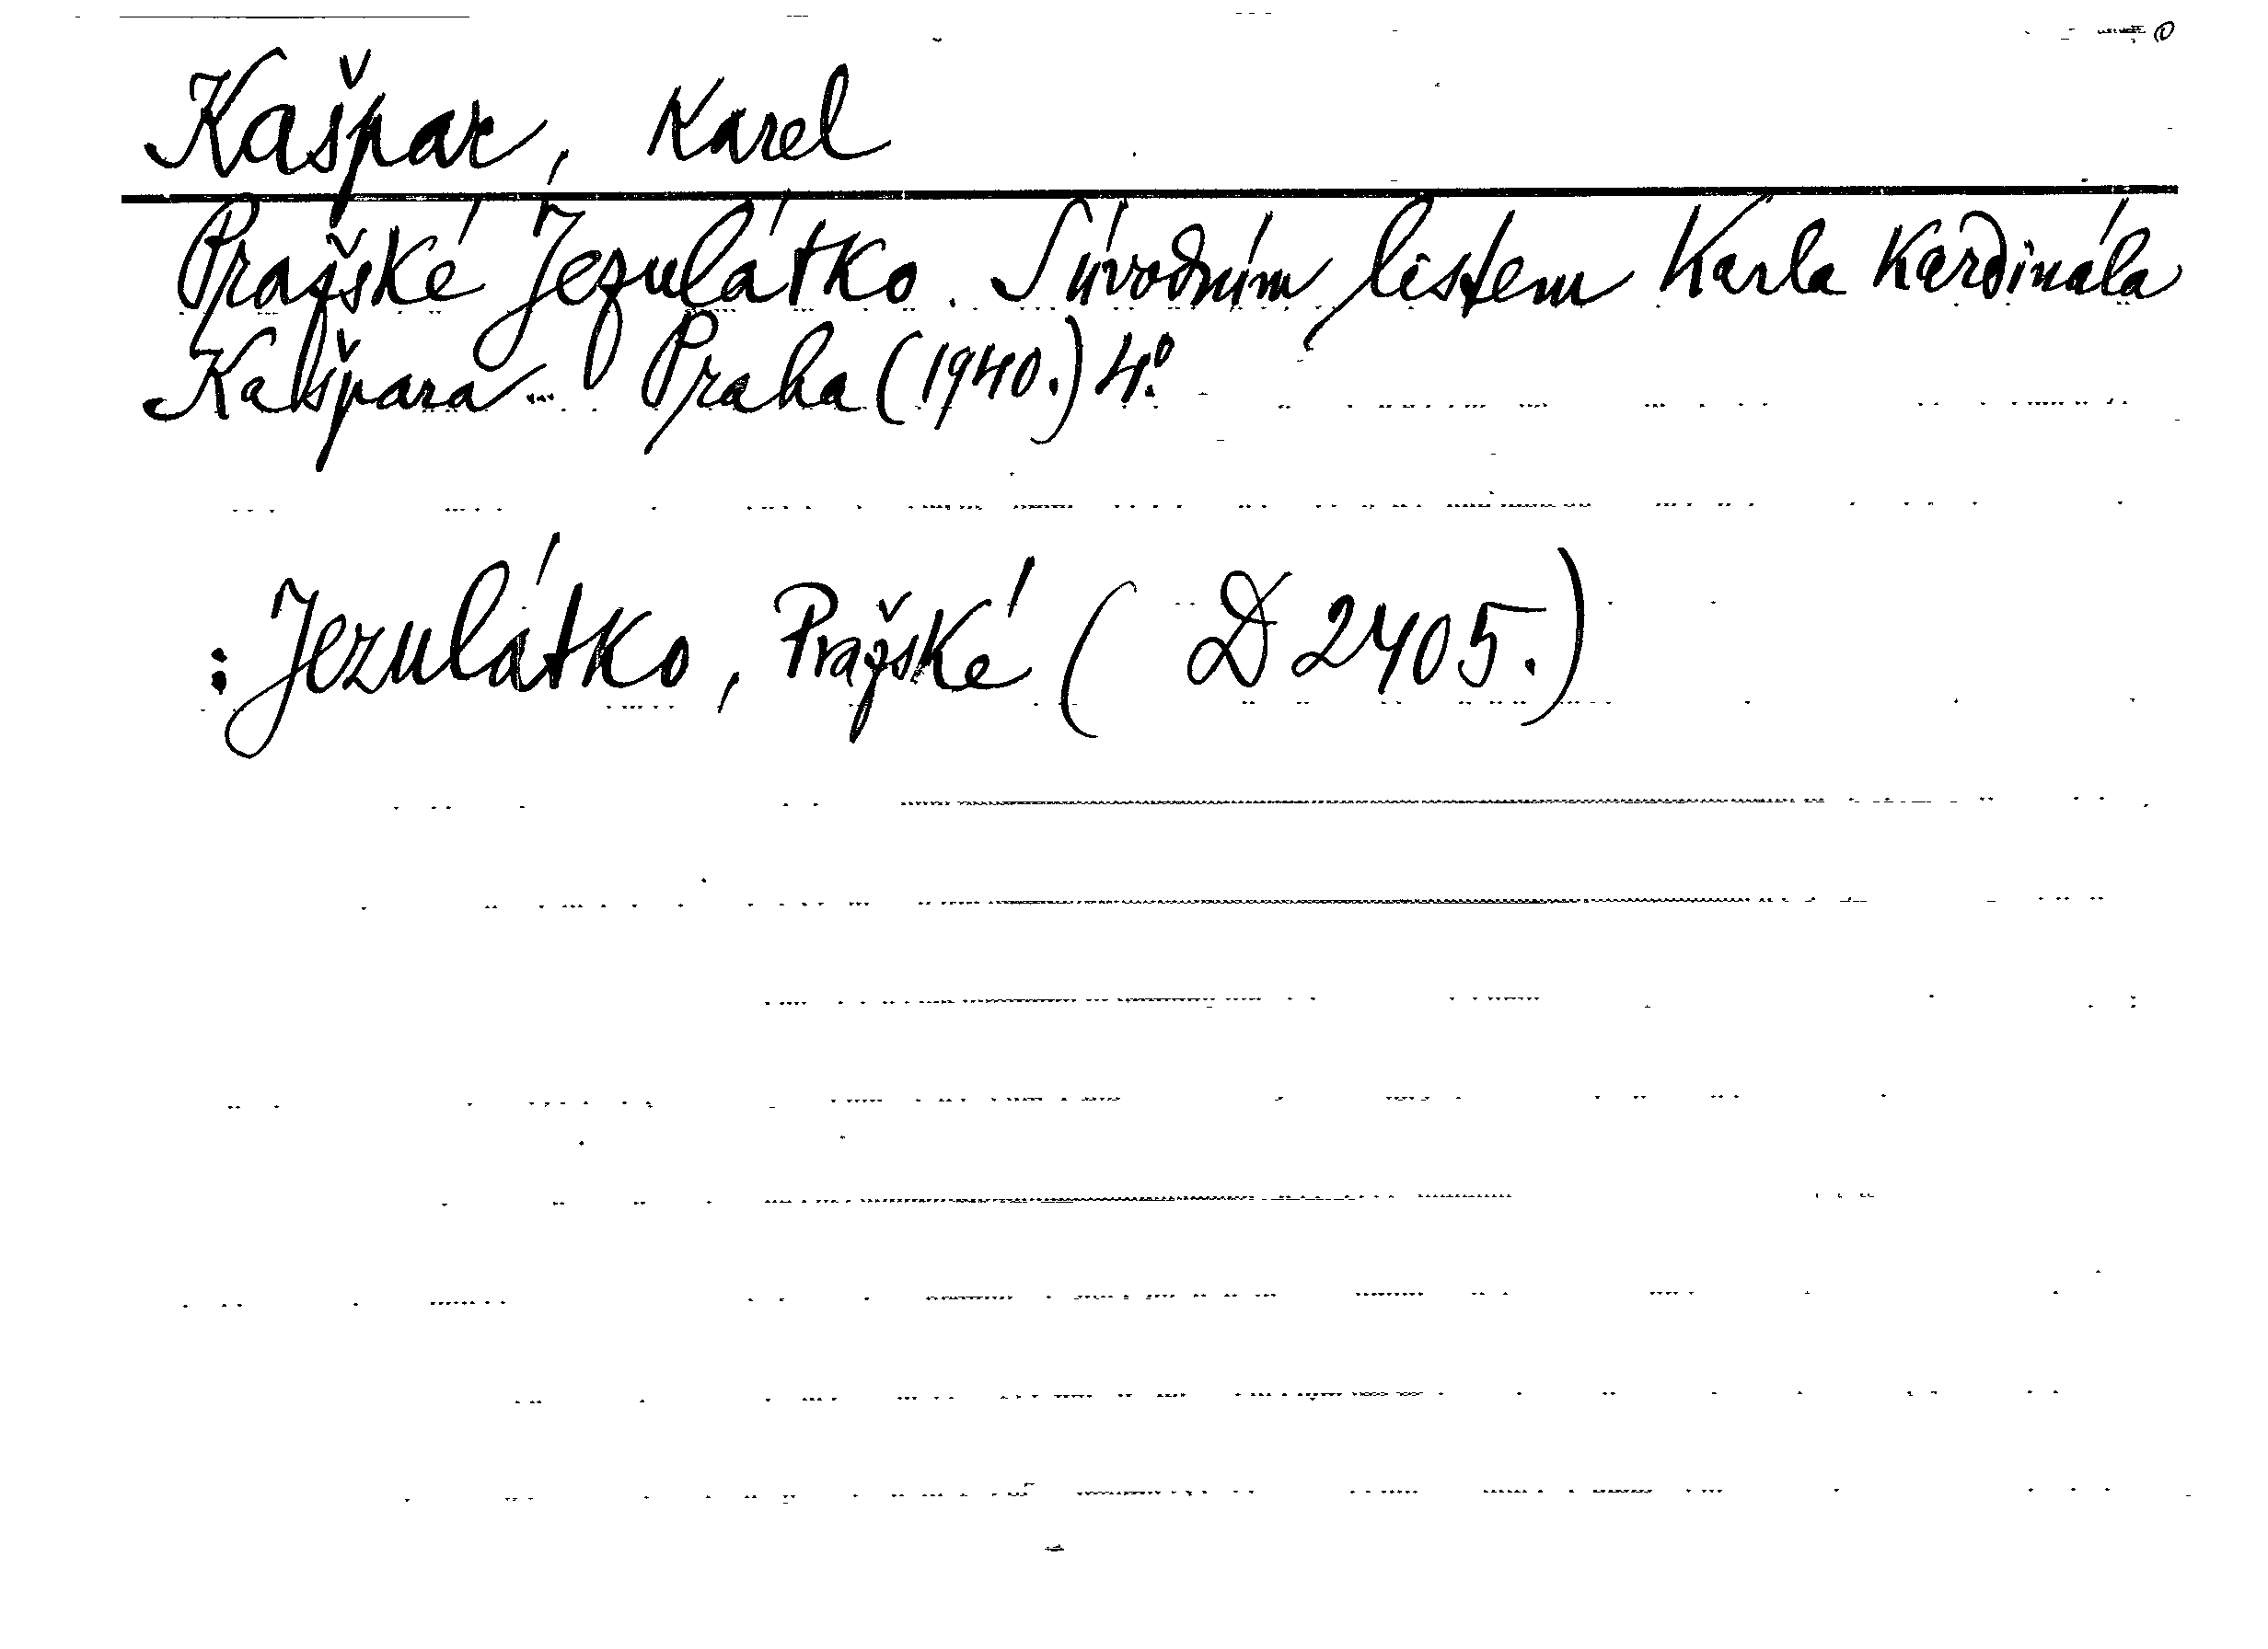 Kašpar, Karel
Pražské Jezulátko. S úvodním listem Karla Kardinála
Kašpara Praha (1940.) 4.°
: Jezulátko, Pražské ( D 2405.)